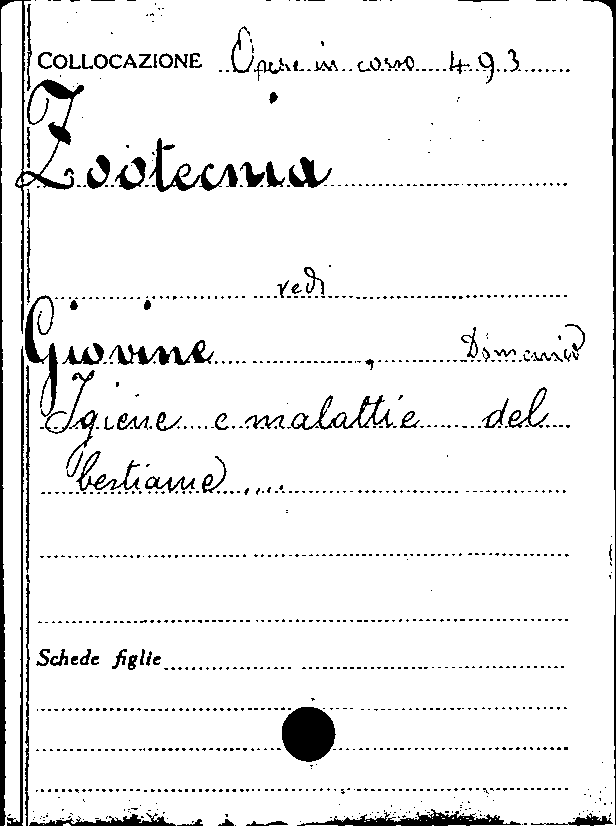 COLLOCAZIONE Opere in corso 493
Zootecnia
vedi
Giovine , Domenico
Igiene e malattie del
bestiame ....
Schede figlie